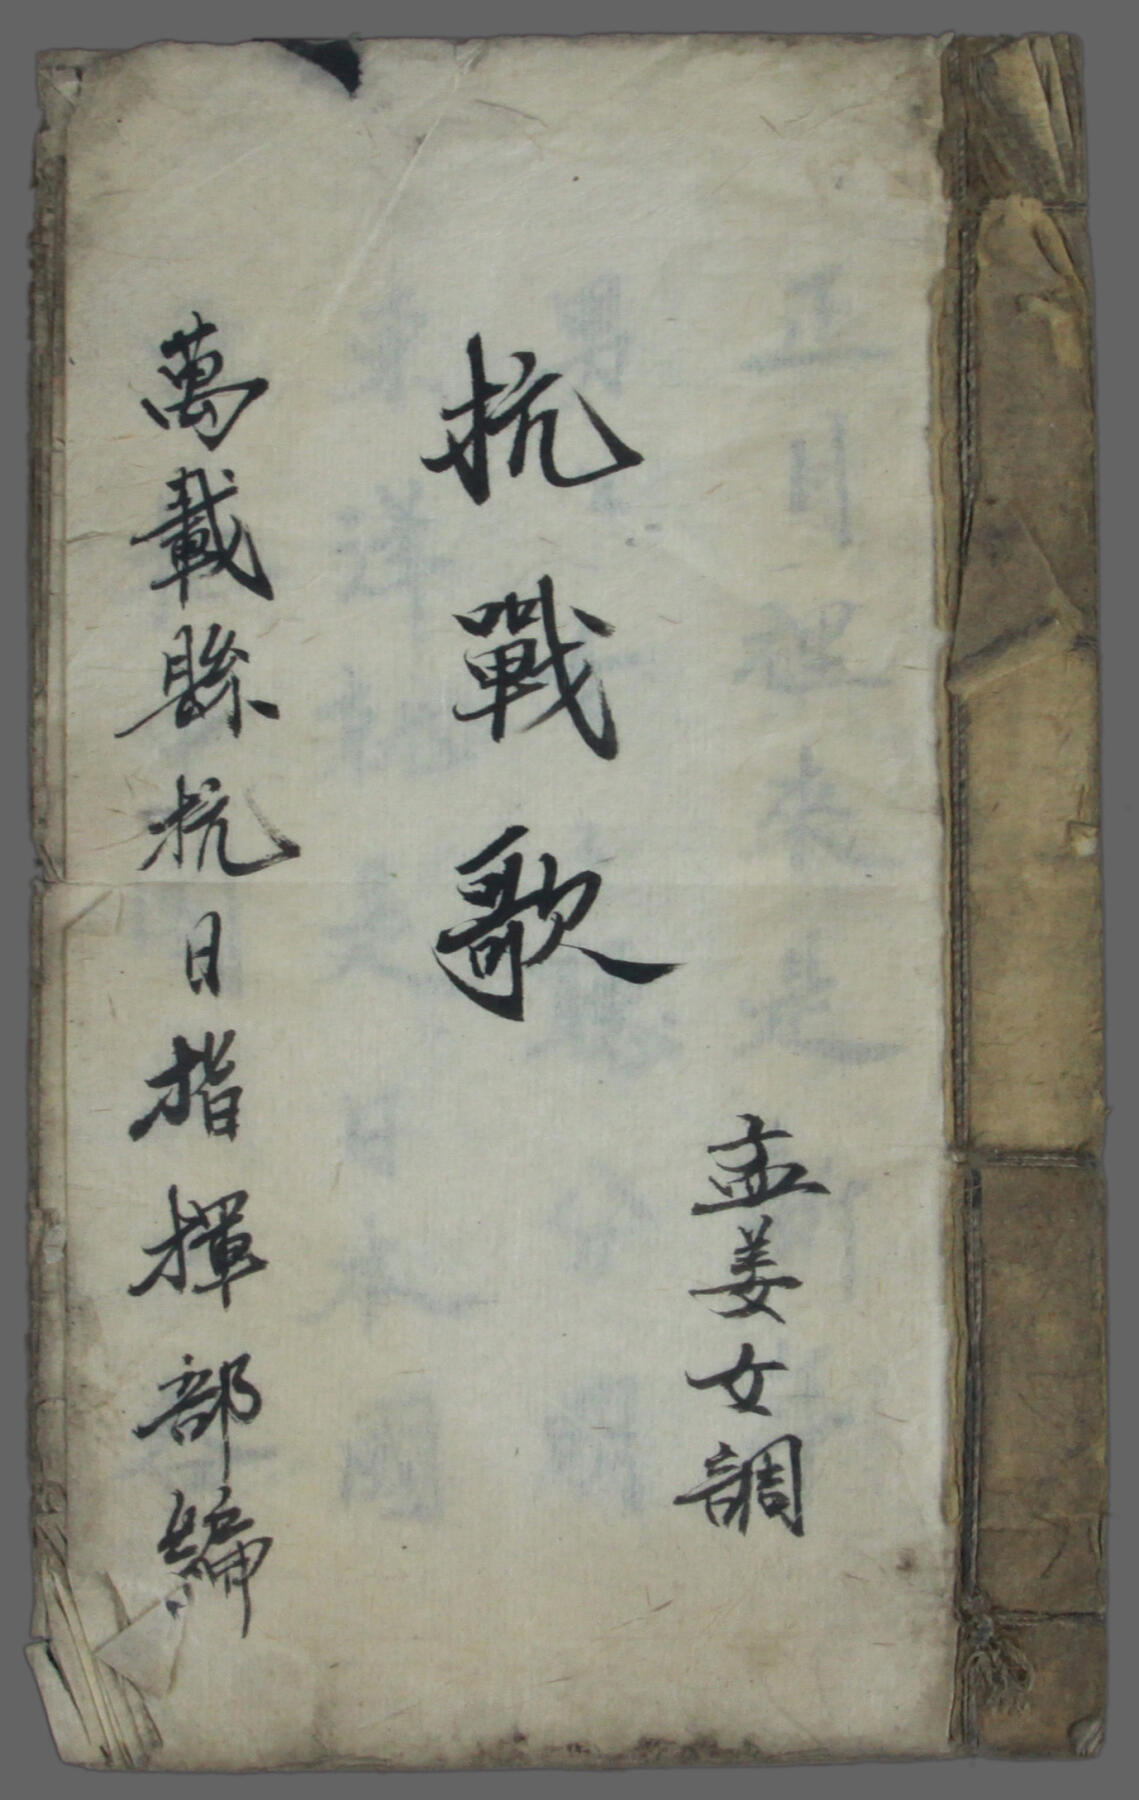 孟姜女調
抗戰歌
萬載縣抗日指揮部編